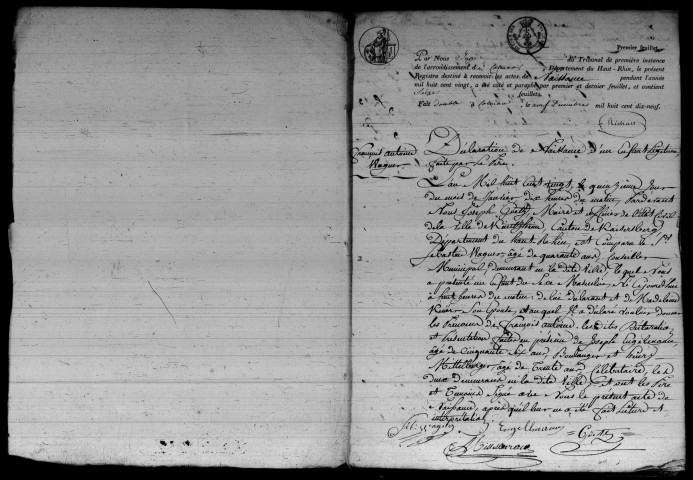 Premier feuillet.
Par Nous Juge du Tribunal de première instance
de l'arrondissement de Colmar Département du Haut-Rhin, le présent
Registre destiné à recevoir les actes de Naissance pendant l'année
mil huit cent vingt, a été coté et paraphé par premier et dernier feuillet, et contient
Seize feuillets.
Fait double à Colmar, le neuf Décembre mil huit cent dix-neuf.
François antoine
Wagner
Déclaration de Naissance d'un Enfant légitime
faite par le Père.
L'an Mil huit Cent vingt, le quinzième Jour
du mois de Janvier dix heures du matin, Pardevant
Nous Joseph Maire et officier de l'état Civil
de la Ville de Kientzheim Canton de Kaisersberg
Département du haut Rhin, est Comparu le Sr
Sébastien Wagner, âgé de quarante ans Conseiller
Municipal, demeurant en la dite Ville, lequel Nous
a présenté un Enfant du Sexe Masculin, Né Ce Jourd'hui
à huit heures du matin de lui déclarant et de Madeleine
Son Épouse, et auquel Il a déclaré vouloir donner
les Prénoms de François antoine, les dites Déclaration
et Présentation faites en présence de Joseph Engelmann
âgé de Cinquante Six ans Boulanger et
Mittelberger, âgé de Trente ans Célibataire, les
deux demeurant en la dite Ville, et ont les Père
et Témoins Signé avec Nous le présent acte de
Naissance, après qu'il leur en a été fait lecture et
interprétation.
Engelmann